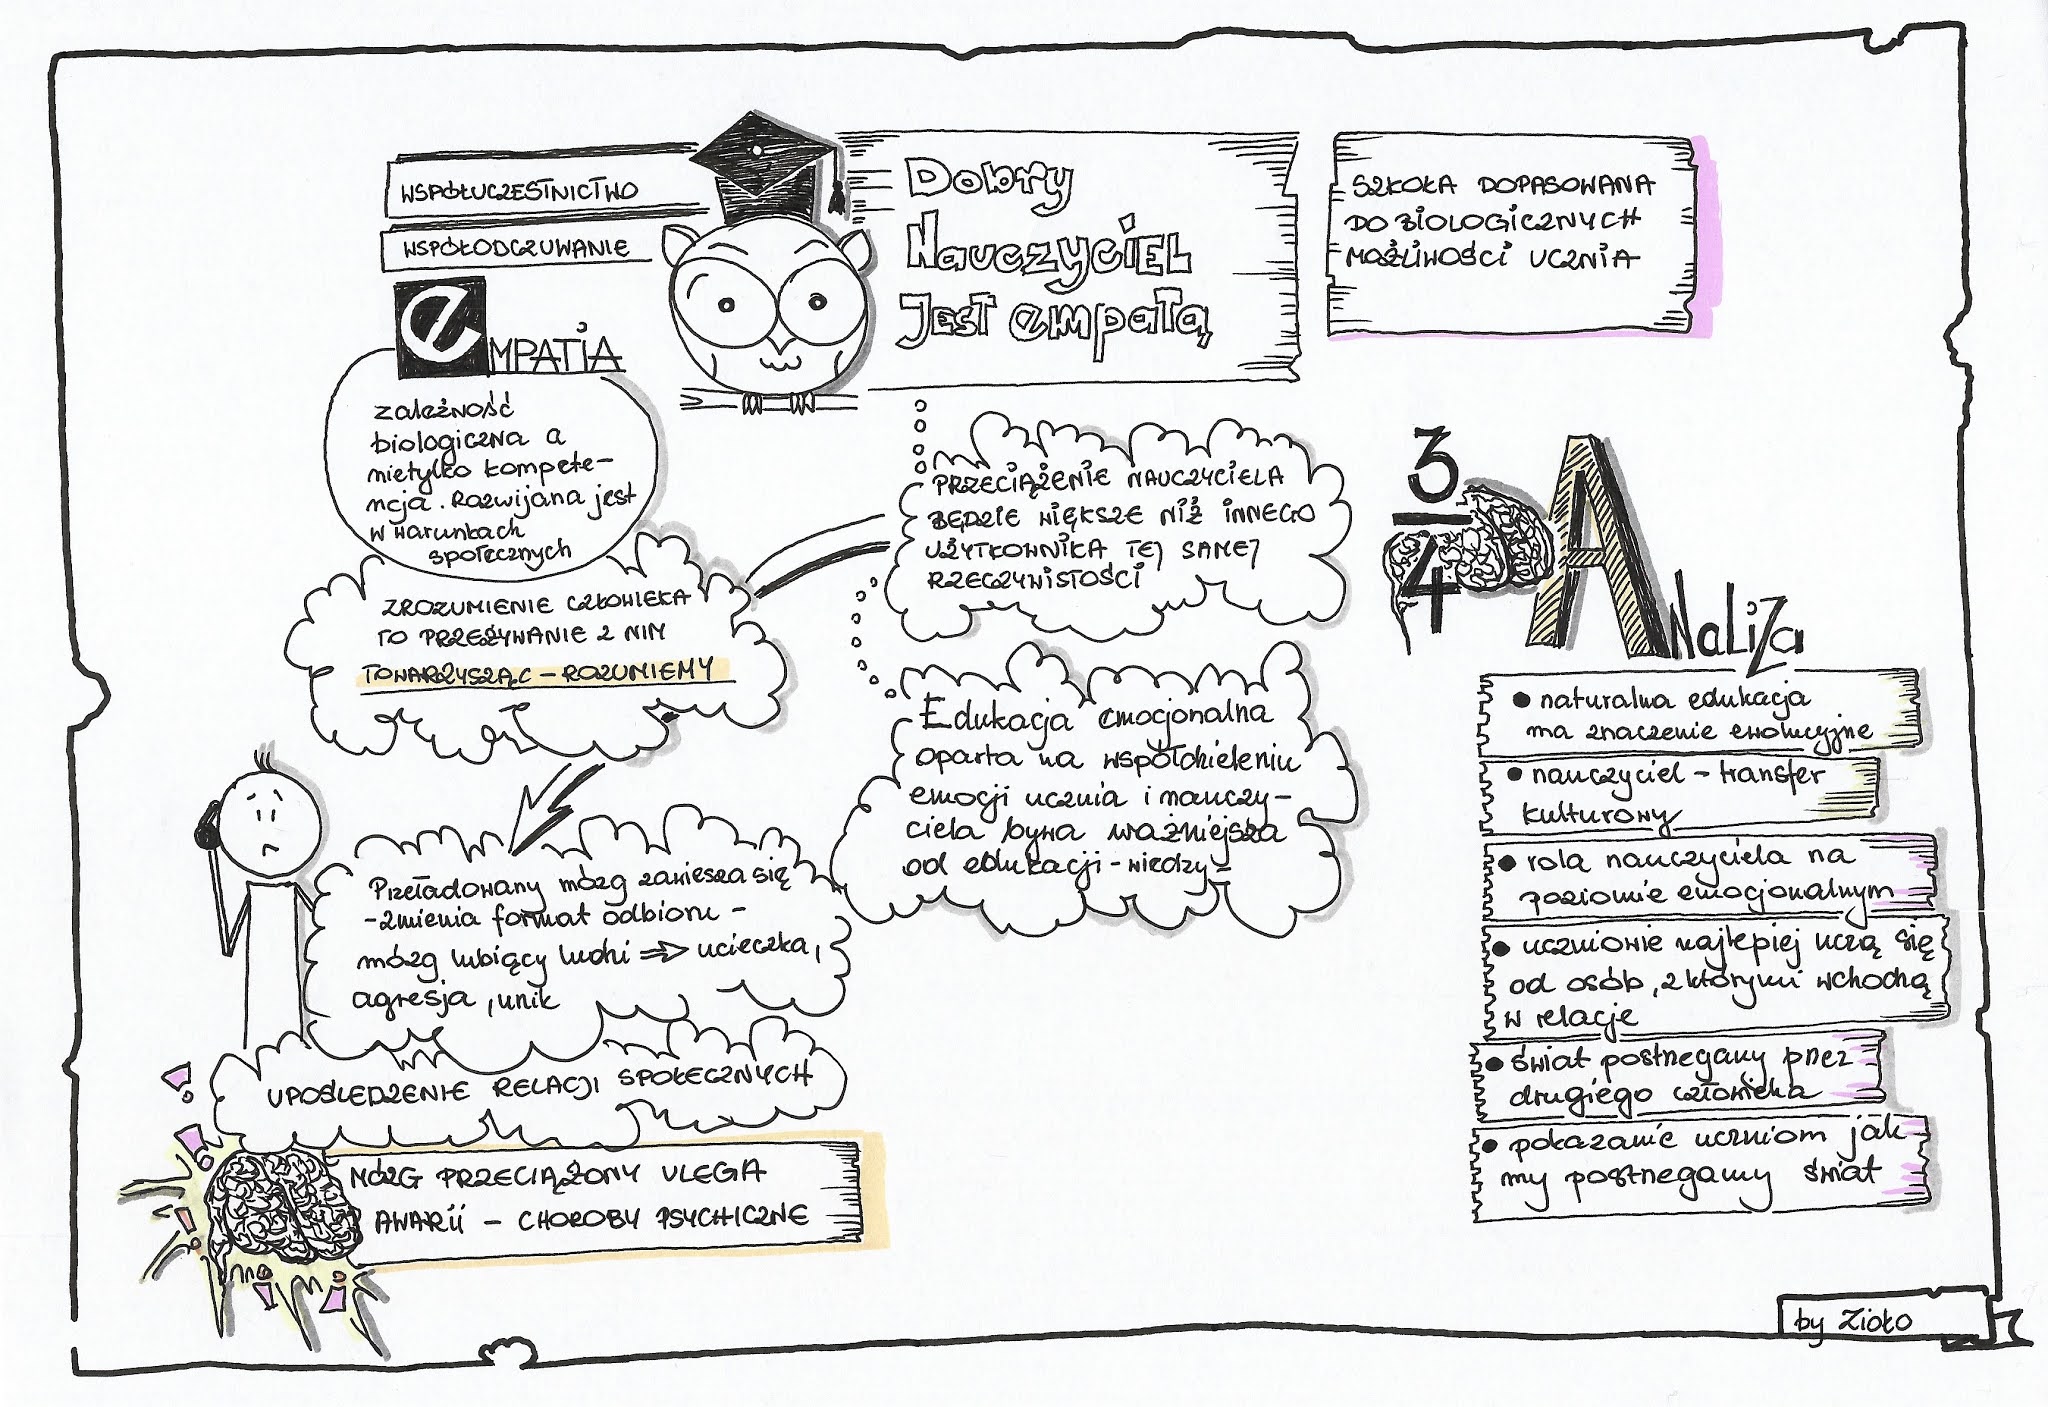 WSPÓŁUCZESTNICTWO
WSPÓŁODCZUWANIE
Dobry
NauczyciEL
JEST empatą
SZKOŁA DOPASOWANA
DO BIOLOGICZNYCH
MOŻLIWOŚCI UCZNIA
eMPATIA
zależność
biologiczna a
nietylko kompete-
ncja. Rozwijana jest
w warunkach
społecznych
ZROZUMIENIE CZŁOWIEKA
TO PRZEŻYWANIE Z NIM
TOWARZYSZĄC - ROZUMIEMY
PRZECIĄŻENIE NAUCZYCIELA
BĘDZIE WIĘKSZE NIŻ INNEGO
UŻYTKOWNIKA TEJ SAMEJ
RZECZYWISTOŚCI
Edukacja emocjonalna
oparta na współdzieleniu
emocji ucznia i nauczy-
ciela bywa ważniejsza
od edukacji - wiedzy
Przeładowany mózg zawiesza się
- zmienia format odbioru -
mózg lubiący ludzi ⇒ ucieczka,
agresja, unik
UPOŚLEDZENIE RELACJI SPOŁECZNYCH
MÓZG PRZECIĄŻONY ULEGA
AWARII - CHOROBY PSYCHICZNE
3
4
ANaLiZa
• naturalna edukacja
ma znaczenie ewolucyjne
• nauczyciel - transfer
kulturowy
• rola nauczyciela na
poziomie emocjonalnym
• uczniowie najlepiej uczą się
od osób, z którymi wchodzą
w relacje
• świat postrzegany przez
drugiego człowieka
• pokazanie uczniom jak
my postrzegamy świat
by Zioło